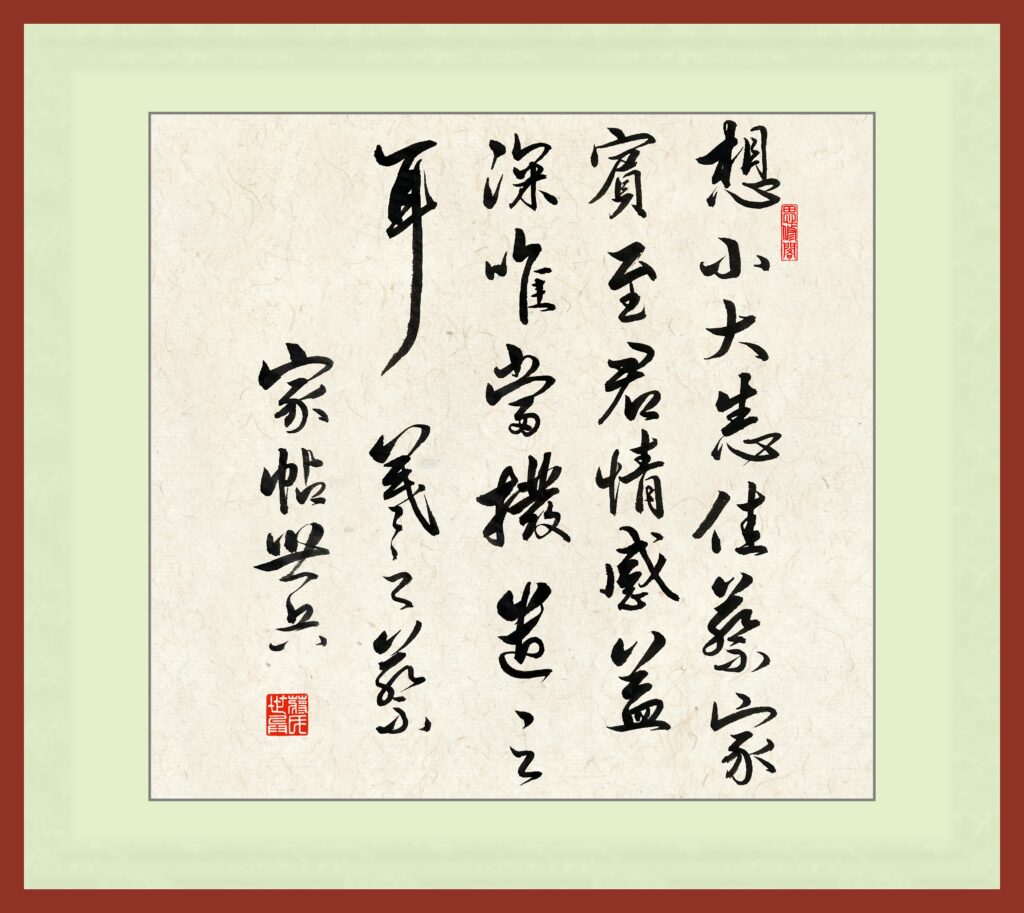 想小大悉佳蔡家
賓至君情感益
深唯當撥遣之
耳 羲之蔡
家帖世兵